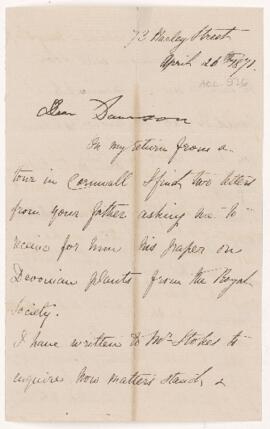 73 Harley Street
April 26th 1871.
ACC 526
Dear Dawson
On my return from a
tour in Cornwall I find two letters
from your father asking me to
receive for him his paper on
Devonian plants from the Royal
Society.
I have written to Mr Stokes to
inquire how matters stand, &